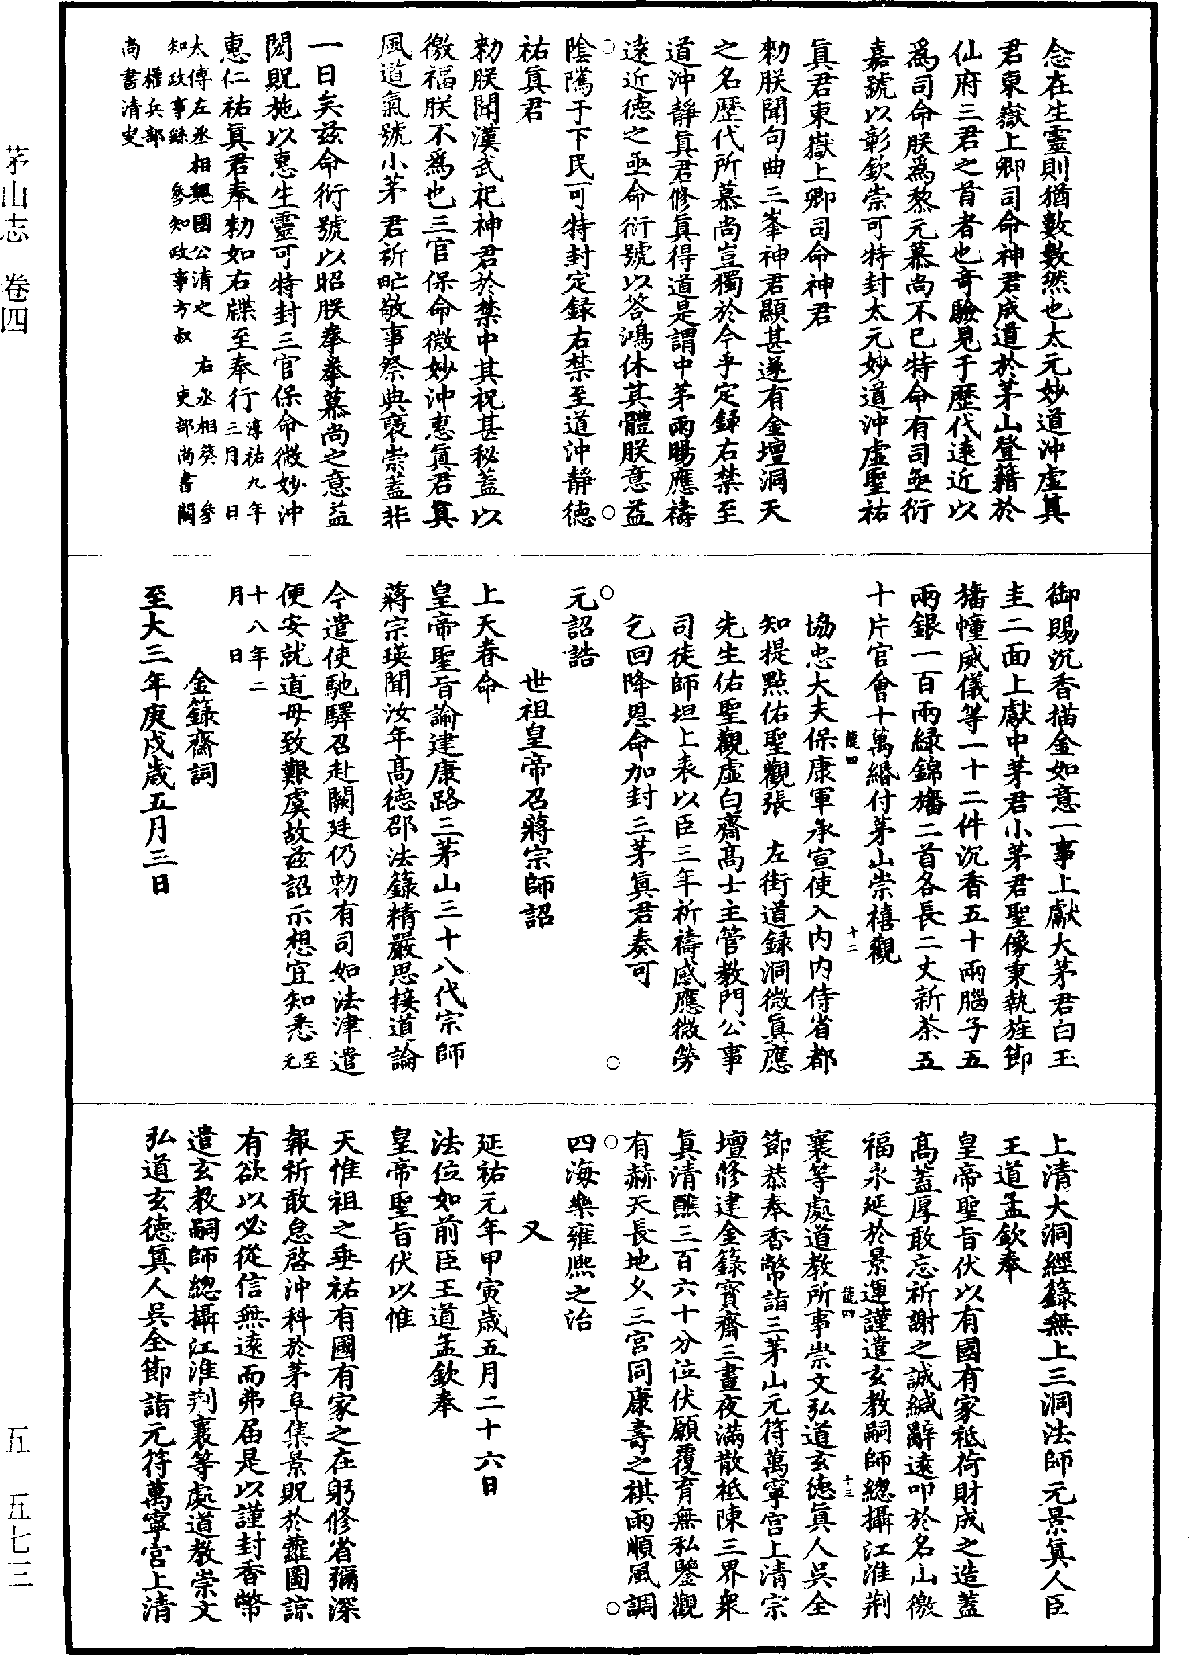 念在生靈則猶數數然也太元妙道沖虛真
君東嶽上卿司命神君成道於茅山登籍於
仙府三君之首者也奇驗見于歷代遠近以
爲司命朕爲黎元慕尚不已特命有司亟衍
嘉號以彰欽崇可特封太元妙道沖虛聖祐
真君東嶽上卿司命神君
勑朕聞句曲三峯神君顯甚遂有金壇洞天
之名歷代所慕尚豈獨於今乎定錄右禁至
道沖靜真君修真得道是謂中茅雨暘應禱
遠近德之亟命衍號以答鴻休其體朕意益
陰隲于下民可特封定録右禁至道沖靜德
祐真君
勑朕聞漢武祀神君於禁中其祝甚秘蓋以
徼福朕不爲也三官保命微妙沖惠真君真
風道氣號小茅君祈旷敬事祭典褒崇蓋非
一日矣兹命衍號以昭朕拳拳慕尚之意益
閎貺施以惠生靈可特封三官保命微妙沖
惠仁祐真君奉勑如右牒至奉行淳祐九年三月 日
太傅左丞相魏國公清之 右丞相葵 參
知政事𦂶 參知政事方叔 吏部尚書闕
權兵部
尚書清叟
御賜沉香描金如意一事上獻大茅君白玉
圭二面上獻中茅君小茅君聖像秉執旌節
旛幢威儀等一十二件沉香五十兩腦子五
兩銀一百兩緑錦旛二首各長二丈新茶五
十片官會十萬緡付茅山崇禧觀
龍四 十二
協忠大夫保康軍承宣使入内内侍省都
知提點佑聖觀張 左街道録洞微真應
先生佑聖觀虛白齋髙士主管教門公事
司徒師坦上表以臣三年祈禱感應微勞
乞回降恩命加封三茅真君奏可
元詔誥
世祖皇帝召蔣宗師詔
上天眷命
皇帝聖旨諭建康路三茅山三十八代宗師
蔣宗瑛聞汝年髙德邵法籙精嚴思接道論
今遣使馳驛召赴闕廷仍勑有司如法津遣
便安就道毋致艱虞故兹詔示想宜知悉至元
十八年二
月 日
金籙齋詞
至大三年庚戌歲五月三日
上清大洞經籙無上三洞法師元景真人臣
王道孟欽奉
皇帝聖旨伏以有國有家祗荷財成之造蓋
髙蓋厚敢忘祈謝之誠緘辭遠叩於名山徼
福永延於景運謹遣玄教嗣師總攝江淮荆
龍四 十三
襄等處道教所事崇文弘道玄德真人吳全
節恭奉香幣詣三茅山元符萬寧宫上清宗
壇修建金籙寳齋三晝夜滿散祗陳三界衆
真清醮三百六十分位伏願覆育無私鑒觀
有赫天長地久三宫同康壽之祺雨順風調
四海樂雍熙之治
又
延祐元年甲寅歲五月二十六日
法位如前臣王道孟欽奉
皇帝聖旨伏以惟
天惟祖之垂祐有國有家之在躬修省彌深
報祈敢怠啓沖科於茅阜集景貺於蘿圖諒
有欲以必從信無遠而弗届是以謹封香幣
遣玄教嗣師總攝江淮荆襄等處道教崇文
弘道玄德真人吳全節詣元符萬寧宫上清
茅山志 卷四
五 五七三